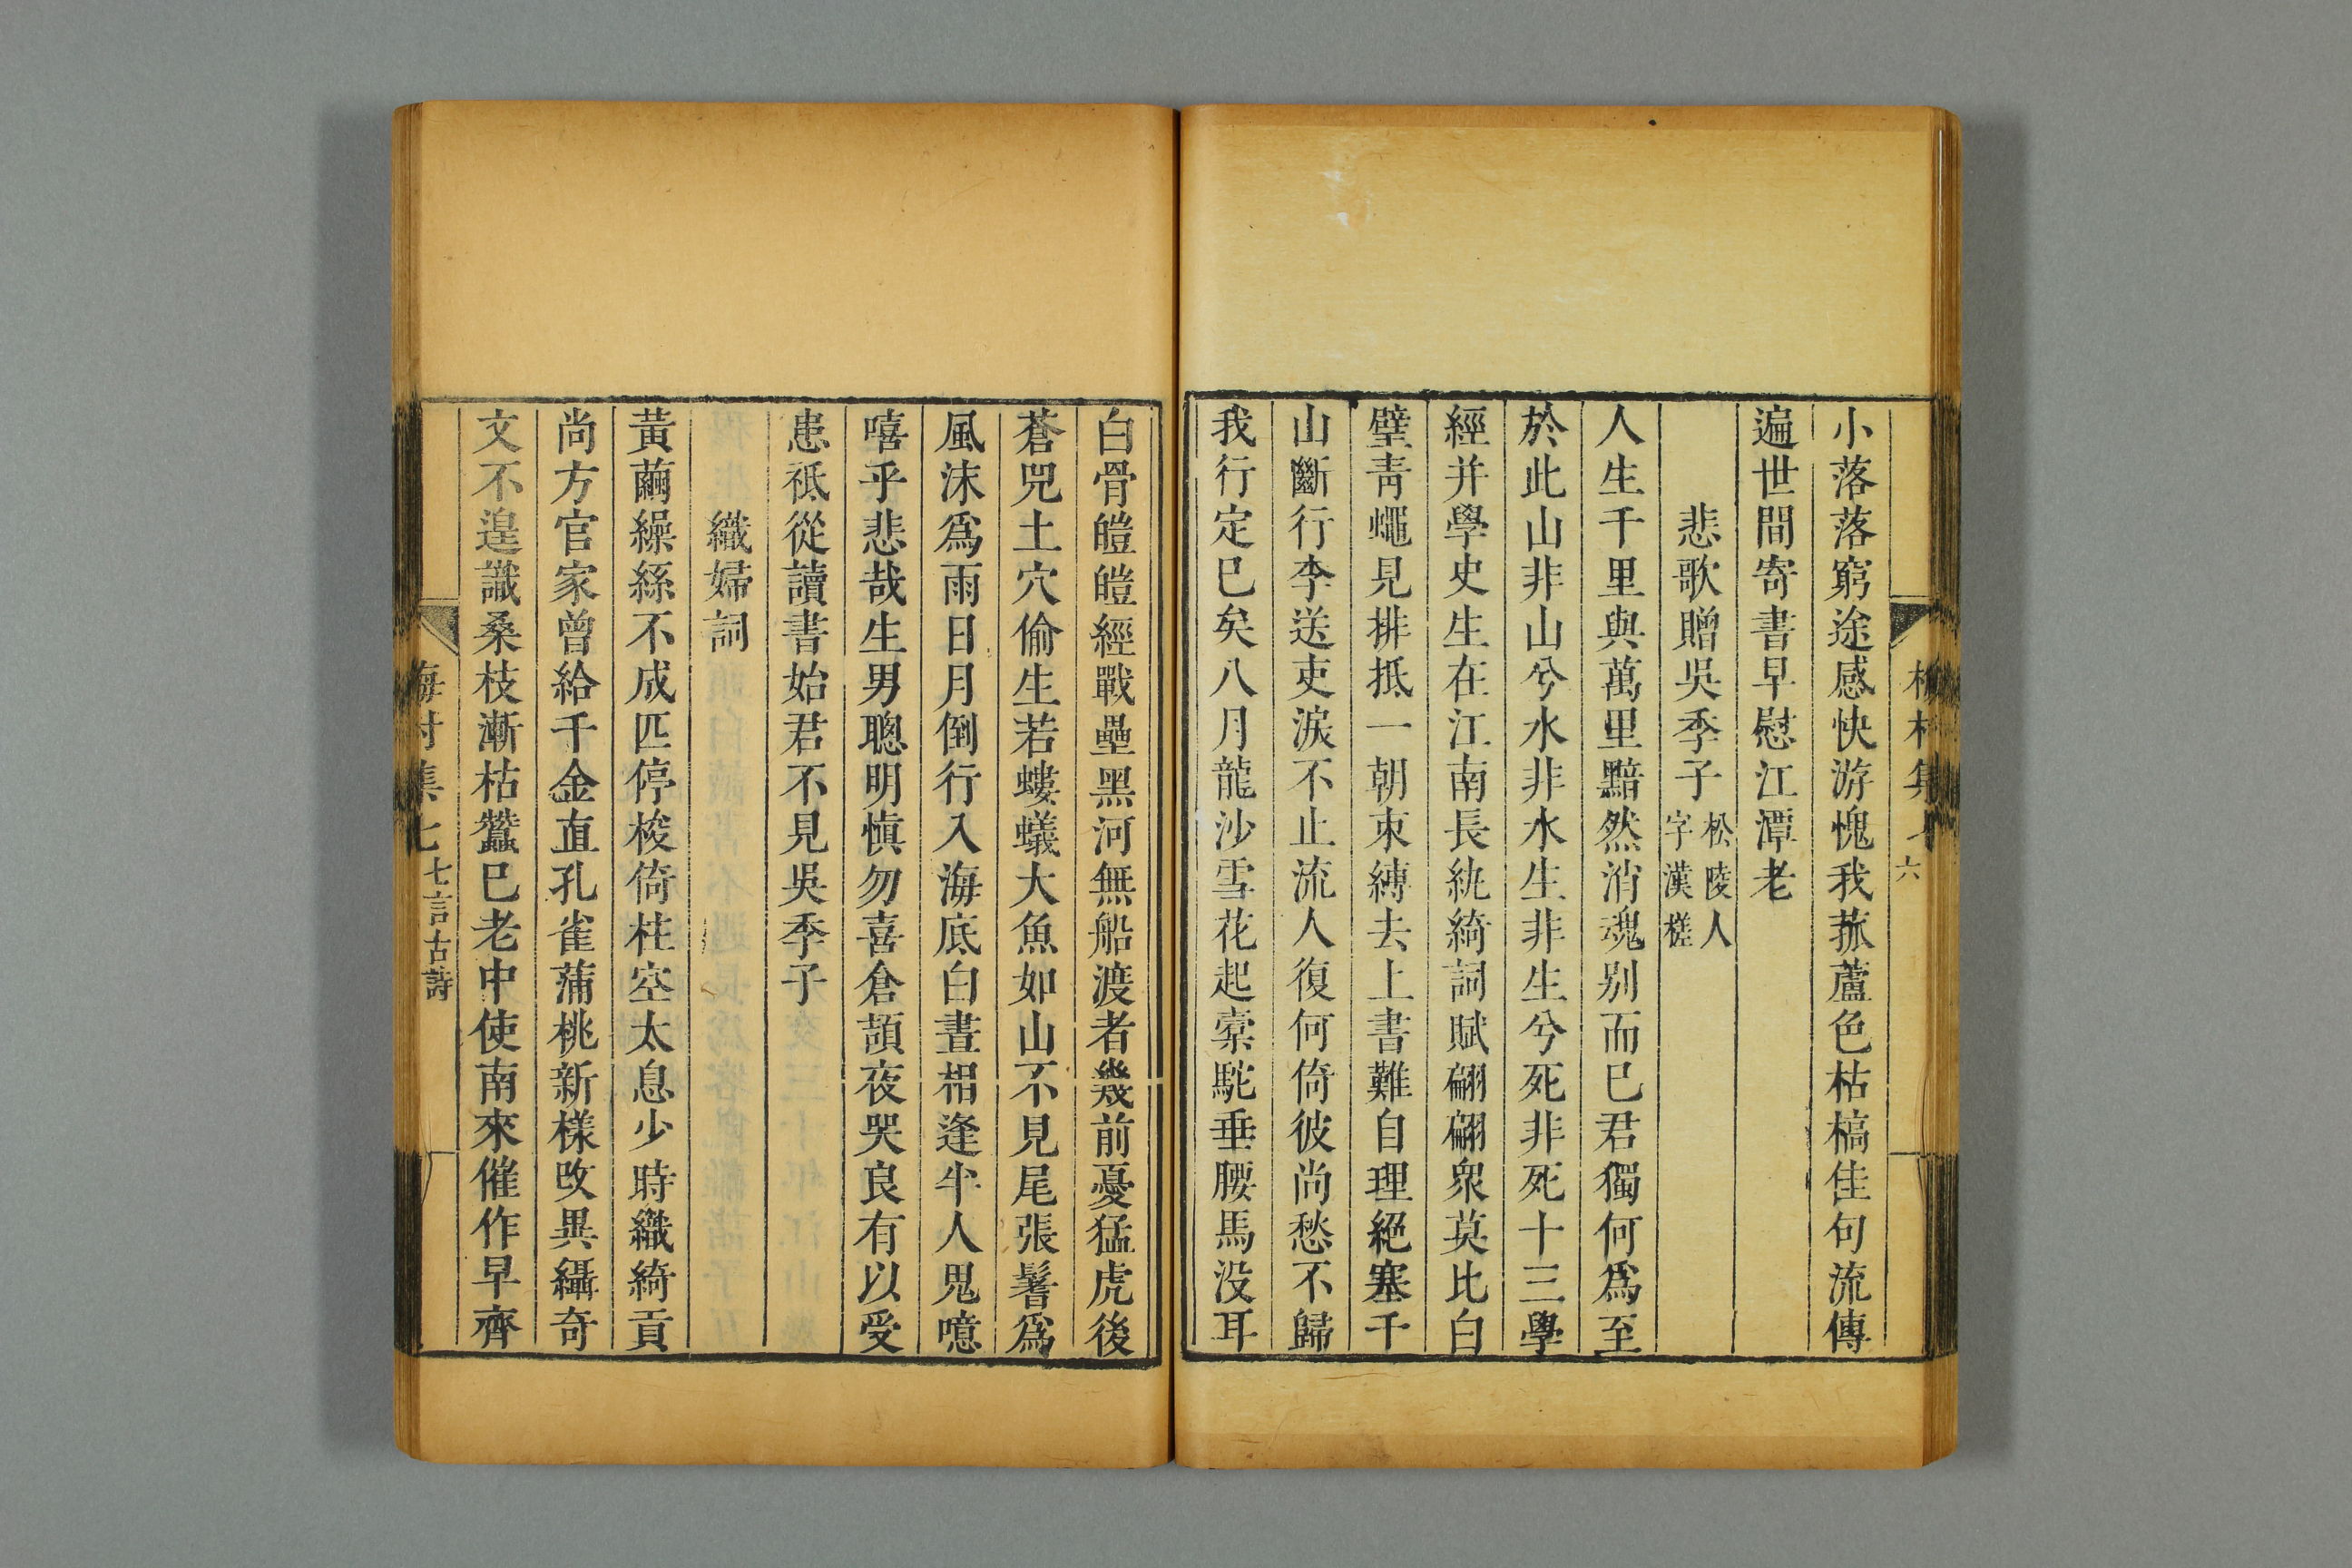 小落落窮途感快游愧我菰蘆色枯槁佳句流傳
遍世間寄書早慰江潭老
悲歌贈吳季子 松陵人字漢槎
人生千里與萬里黯然消魂別而已君獨何爲至
於此山非山兮水非水生非生兮死非死十三學
經并學史生在江南長紈綺詞賦翩翩衆莫比白
璧靑蠅見排抵一朝束縛去上書難自理絕塞千
山斷行李送吏淚不止流人復何倚彼尚愁不歸
我行定已矣八月龍沙雪花起橐駝垂腰馬没耳
白骨皚皚經戰壘黑河無船渡者幾前憂猛虎後
蒼兕土穴偷生若螻蟻大魚如山不見尾張鬐爲
風沫爲雨日月倒行入海底白晝相逢半人鬼噫
嘻乎悲哉生男聰明慎勿喜倉頡夜哭良有以受
患秖從讀書始君不見吳季子
織婦詞
黃繭繰絲不成匹停梭倚柱空太息少時織綺貢
尚方官家曾給千金直孔雀蒲桃新樣改異繡奇
文不遑識桑枝漸枯蠶已老中使南來催作早齊
梅村集七 七言古詩
六